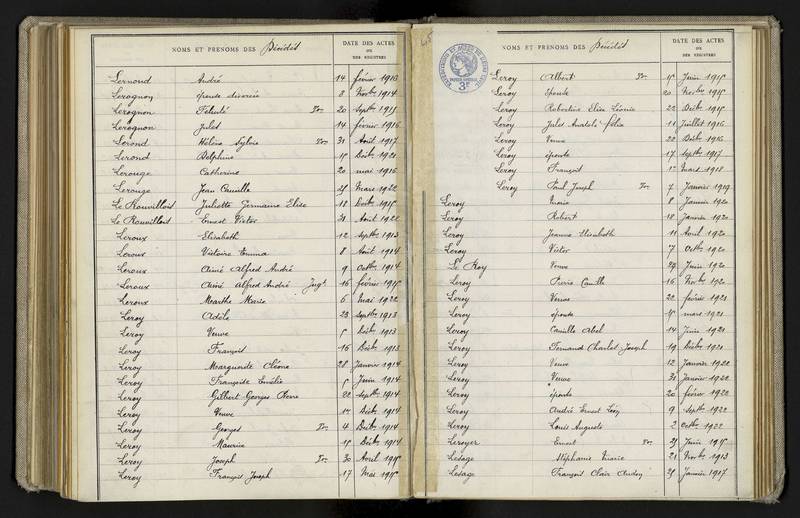 NOMS ET PRENOMS DES Décédés
DATE DES ACTES
OU
DES REGISTRES
Lernond André 14 février 1913
Lerognon épouse divorcée 3 Novbre 1914
Lerognon Félicité Ton 20 Septbre 1915
Lerognon Jules 14 février 1916
Lerond Hélène Sylvie Ton 31 Août 1917
Lerond Delphine 15 Décbre 1921
Lerouge Catherine 20 mai 1916
Lerouge Jean Camille 25 Mars 1922
Le Rouvillois Juliette Germaine Elise 18 Décbre 1915
Le Rouvillois Ernest Victor 31 Août 1922
Leroux Elisabeth 12 Septbre 1913
Leroux Victoire Emma 8 Août 1914
Leroux Aimé Alfred André 9 Octbre 1914
Leroux Aimé Alfred André Jugt 16 février 1915
Leroux Marthe Marie 6 mai 1922
Leroy Adèle 23 Septbre 1913
Leroy Veuve 5 Décbre 1913
Leroy François 16 Décbre 1913
Leroy Marguerite 28 Janvier 1914
Leroy Françoise Emélie 5 Juin 1914
Leroy Gilbert Georges 22 Septbre 1914
Leroy Veuve 1er Décbre 1914
Leroy Georges Ton 4 Décbre 1914
Leroy Maurice 15 Décbre 1914
Leroy Joseph Ton 30 Avril 1915
Leroy François Joseph 17 Mai 1915
NOMS ET PRENOMS DES Décédés
DATE DES ACTES
OU
DES REGISTRES
3F
Leroy Albert Ton 15 Juin 1915
Leroy épouse 20 Novbre 1915
Leroy Robertine Elise Léonie 22 Décbre 1915
Leroy Jules Anatole félix 11 Juillet 1916
Leroy Veuve 22 Décbre 1916
Leroy épouse 17 Septbre 1917
Leroy François 1er Mars 1918
Leroy Paul Joseph Ton 7 Janvier 1919
Leroy Marie 8 Janvier 1920
Leroy Robert 18 Janvier 1920
Leroy Jeanne Elisabeth 11 Avril 1920
Leroy Victor 7 Octbre 1920
Le Roy Veuve 29 Juin 1920
Leroy Pierre Camille 16 Novbre 1920
Leroy Veuve 22 février 1921
Leroy épouse 15 mars 1921
Leroy Camille Abel 14 Juin 1921
Leroy Fernand Charles Joseph 19 Décbre 1921
Leroy Veuve 12 Janvier 1922
Leroy Veuve 31 Janvier 1922
Leroy épouse 20 février 1922
Leroy André Ernest Léon 9 Septbre 1922
Leroy Louis Auguste 2 Octbre 1922
Leroyer Ernest Ton 25 Juin 1915
Lesage Stéphanie Marie 21 Novbre 1913
Lesage François Clair 25 Janvier 1917